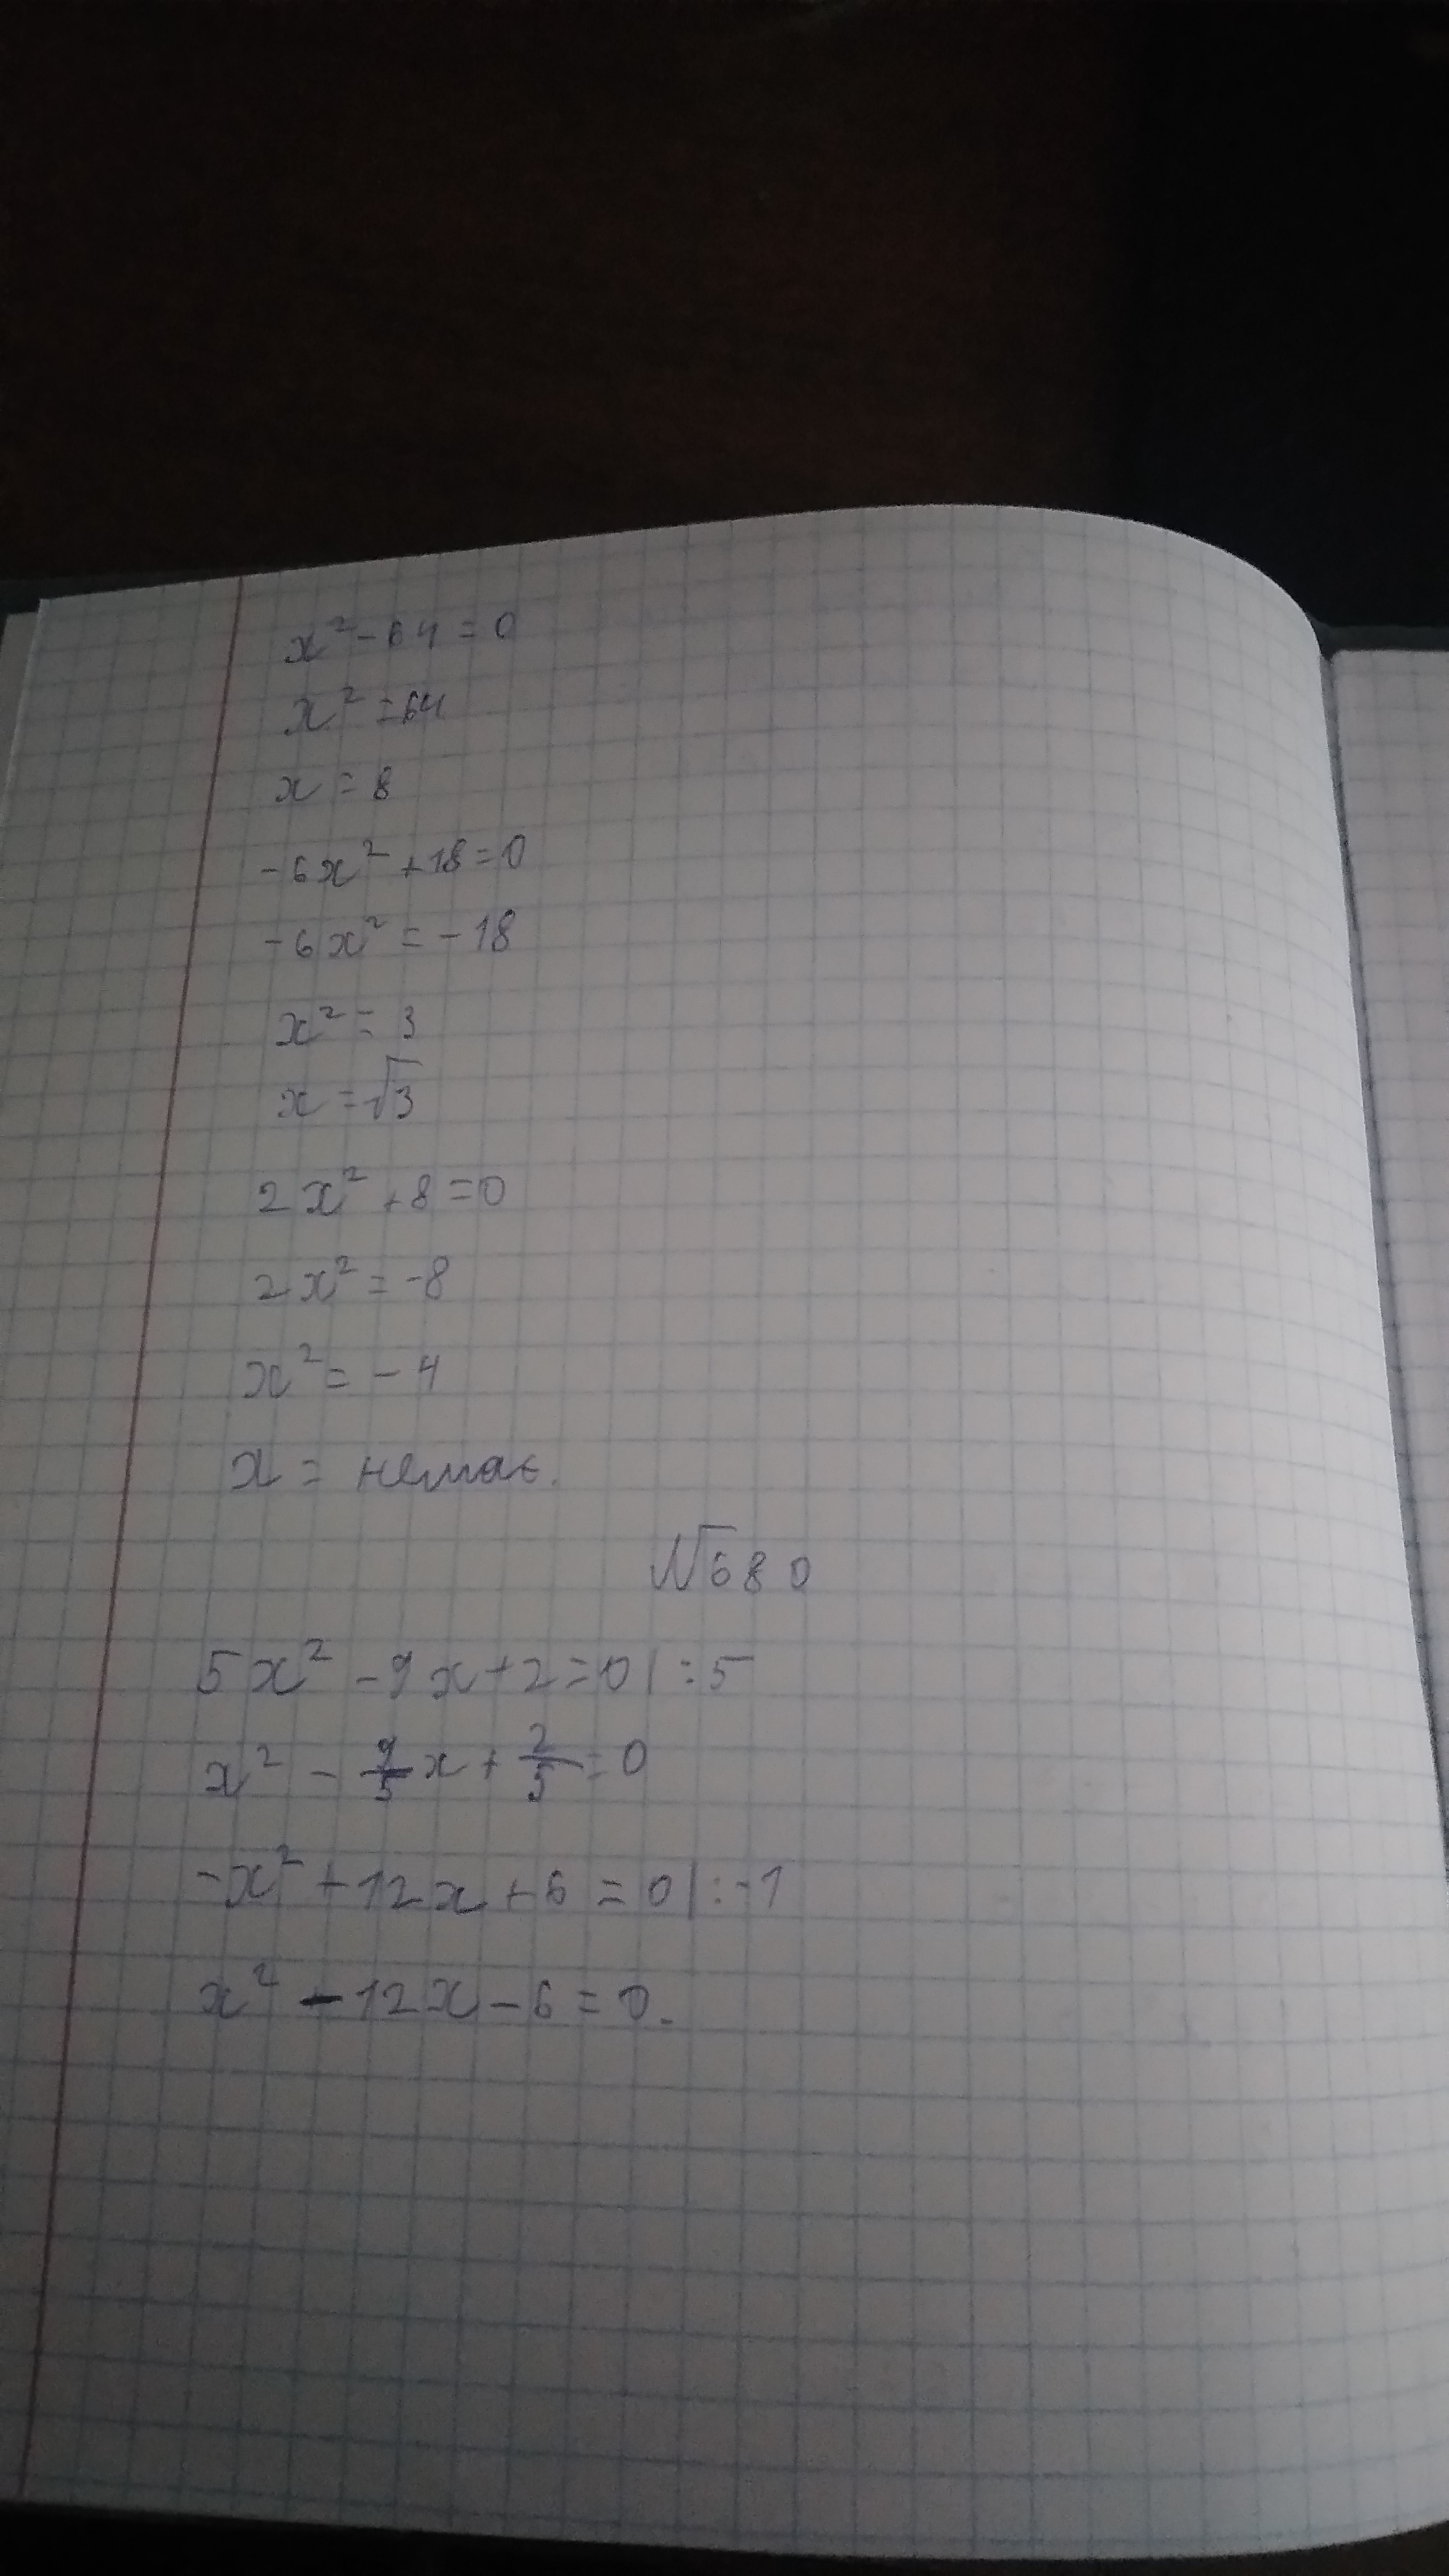 x² - 64 = 0
x² = 64
x = 8
-6x² + 18 = 0
-6x² = -18
x² = 3
x = √3
2x² + 8 = 0
2x² = -8
x² = -4
x = немає.
№680
5x² - 9x + 2 = 0 | : 5
x² - 9/5 x + 2/5 = 0
-x² + 12x + 6 = 0 | : -1
x² - 12x - 6 = 0.